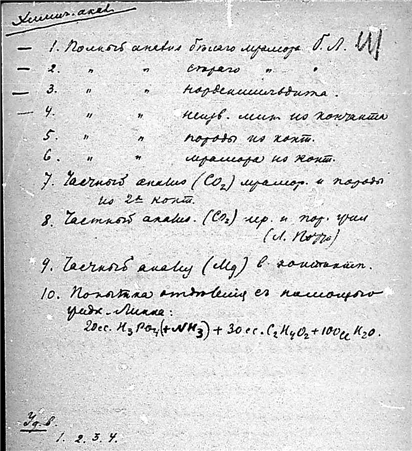 Химич. анал.
— 1. Полный анализ белаго мрамора Б. Л.
— 2. " " стараго " "
— 3. " " норденшильдита.
— 4. " " неизв. мин. из контакта
5. " " породы из конт.
6. " " мрамора из конт.
7. Частный анализ (CO₂) мрамор. и породы
из 2х конт.
8. Частный анализ. (CO₂) мр. и пор.
(Л.
9. Частный анализ (Mg) в контактн.
10. Попытка отделения с помощью
жидк. Линка:
20cc. H₃PO₄ (+NH₃) + 30cc. C₂H₄O₂ + 100cc H₂O.
Уд. в.
1. 2. 3. 4.